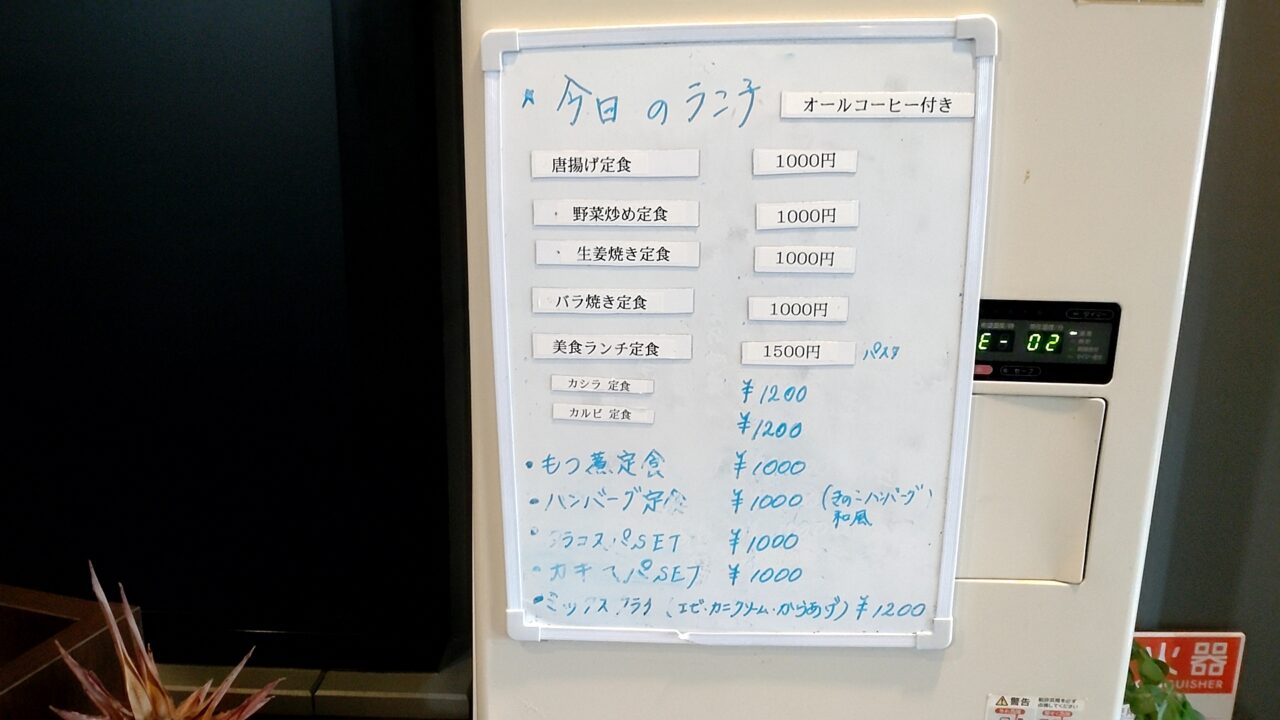 今日のランチ オールコーヒー付き
唐揚げ定食 1000円
野菜炒め定食 1000円
生姜焼き定食 1000円
バラ焼き定食 1000円
美食ランチ定食 1500円 パスタ
カシラ 定食 ¥1200
カルビ 定食 ¥1200
・もつ煮定食 ¥1000
・ハンバーグ定食 ¥1000 (きのこハンバーグ)
和風
SET ¥1000
SET ¥1000
・ミックスフライ (エビ・カニクリーム・からあげ) ¥1200
E- 02
火器
警告